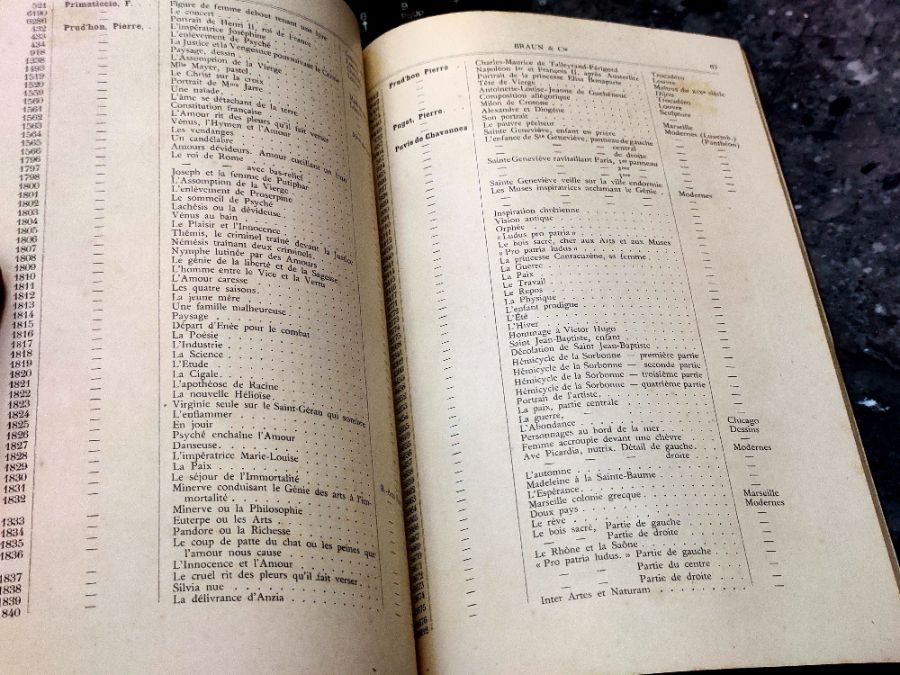 521 Primaticcio, F. Figure de femme debout tenant une lyre
6286 Le concert
432 Prud'hon, Pierre. Portrait de Henri II, roi de France
433 — L'impératrice Joséphine
434 — L'enlèvement de Psyché
918 — La Justice et la Vengeance poursuivant le Crime
1338 — Paysage, dessin
1493 — L'Assomption de la Vierge
1519 — Mlle Mayer, pastel.
1520 — Le Christ sur la croix
1559 — Portrait de Mme Jarre
1560 — Une naïade
1561 — L'âme se détachant de la terre
1562 — Constitution française
1563 — L'Amour rit des pleurs qu'il fait verser
1564 — Vénus, l'Hymen et l'Amour
1565 — Les vendanges
1566 — Un candélabre
1796 — Amours dévideurs. Amour cueillant un fruit
1797 — Le roi de Rome
1798 — avec bas-relief
1800 — Joseph et la femme de Putiphar
1801 — L'Assomption de la Vierge
1802 — L'enlèvement de Proserpine
1803 — Le sommeil de Psyché
1804 — Lachésis ou la dévideuse
1805 — Vénus au bain
1806 — Le Plaisir et l'Innocence
1807 — Thémis, le criminel traîné devant la justice
1808 — Némésis traînant deux criminels
1809 — Nymphe lutinée par des Amours
1810 — Le génie de la liberté et de la Sagesse
1811 — L'homme entre le Vice et la Vertu
1812 — L'Amour caresse
1813 — Les quatre saisons
1814 — La jeune mère
1815 — Une famille malheureuse
1816 — Paysage
1817 — Départ d'Enée pour le combat
1818 — La Poésie
1819 — L'Industrie
1820 — La Science
1821 — L'Etude
1822 — La Cigale
1823 — L'apothéose de Racine
1824 — La nouvelle Héloïse
1825 — Virginie seule sur le Saint-Géran qui sombre
1826 — L'enflammer
1827 — En jouir
1828 — Psyché enchaîne l'Amour
1829 — Danseuse
1830 — L'impératrice Marie-Louise
1831 — La Paix
1832 — Le séjour de l'Immortalité
Minerve conduisant le Génie des arts à l'immortalité
1333 — Minerve ou la Philosophie
1834 — Euterpe ou les Arts
1835 — Pandore ou la Richesse
1836 — Le coup de patte du chat ou les peines que
l'amour nous cause
1837 — L'Innocence et l'Amour
1838 — Le cruel rit des pleurs qu'il fait verser
1839 — Silvia nue
840 — La délivrance d'Anzia
BRAUN & Cie 65
Prud'hon Pierre Charles-Maurice de Talleyrand-Périgord
— Napoléon Ier et François II, après Austerlitz Trocadéro
— Portrait de la princesse Elisa Bonaparte Louvre
— Tête de Vierge Maîtres du XIXe siècle
— Antoinette-Louise-Jeanne de Guéhéneuc Dijon
— Composition allégorique Trocadéro
Puget, Pierre. Milon de Crotone Louvre
— Alexandre et Diogène Sculpture
— Son portrait Marseille
Puvis de Chavannes Le pauvre pêcheur Modernes (Luxemb.)
— Sainte Geneviève, enfant en prière (Panthéon)
— L'enfance de Ste Geneviève, panneau de gauche
— central
— de droite
— Sainte Geneviève ravitaillant Paris, 1er panneau
— 2me
— 3me
— Sainte Geneviève veille sur la ville endormie
— Les Muses inspiratrices acclamant le Génie Modernes
— Inspiration chrétienne
— Vision antique
— Orphée
— « Ludus pro patria »
— Le bois sacré, cher aux Arts et aux Muses
— « Pro patria ludus »
— La princesse Cantacuzène, sa femme
— La Guerre
— La Paix
— Le Travail
— Le Repos
— La Physique
— L'enfant prodigue
— L'Été
— L'Hiver
— Hommage à Victor Hugo
— Saint Jean-Baptiste, enfant
— Décolation de Saint Jean-Baptiste
— Hémicycle de la Sorbonne — première partie
— Hémicycle de la Sorbonne — seconde partie
— Hémicycle de la Sorbonne — troisième partie
— Hémicycle de la Sorbonne — quatrième partie
— Portrait de l'artiste
— La paix, partie centrale
— La guerre,
— L'Abondance
— Personnages au bord de la mer Chicago
— Femme accroupie devant une chèvre Dessins
— Ave Picardia, nutrix. Détail de gauche Modernes
— — — droite
— L'automne
— Madeleine à la Sainte-Baume
— L'Espérance
— Marseille colonie grecque Marseille
— Doux pays Modernes
— Le rêve
— Le bois sacré, Partie de gauche
— — Partie de droite
— Le Rhône et la Saône
— « Pro patria ludus. » Partie de gauche
— — Partie du centre
— — Partie de droite
— Inter Artes et Naturam